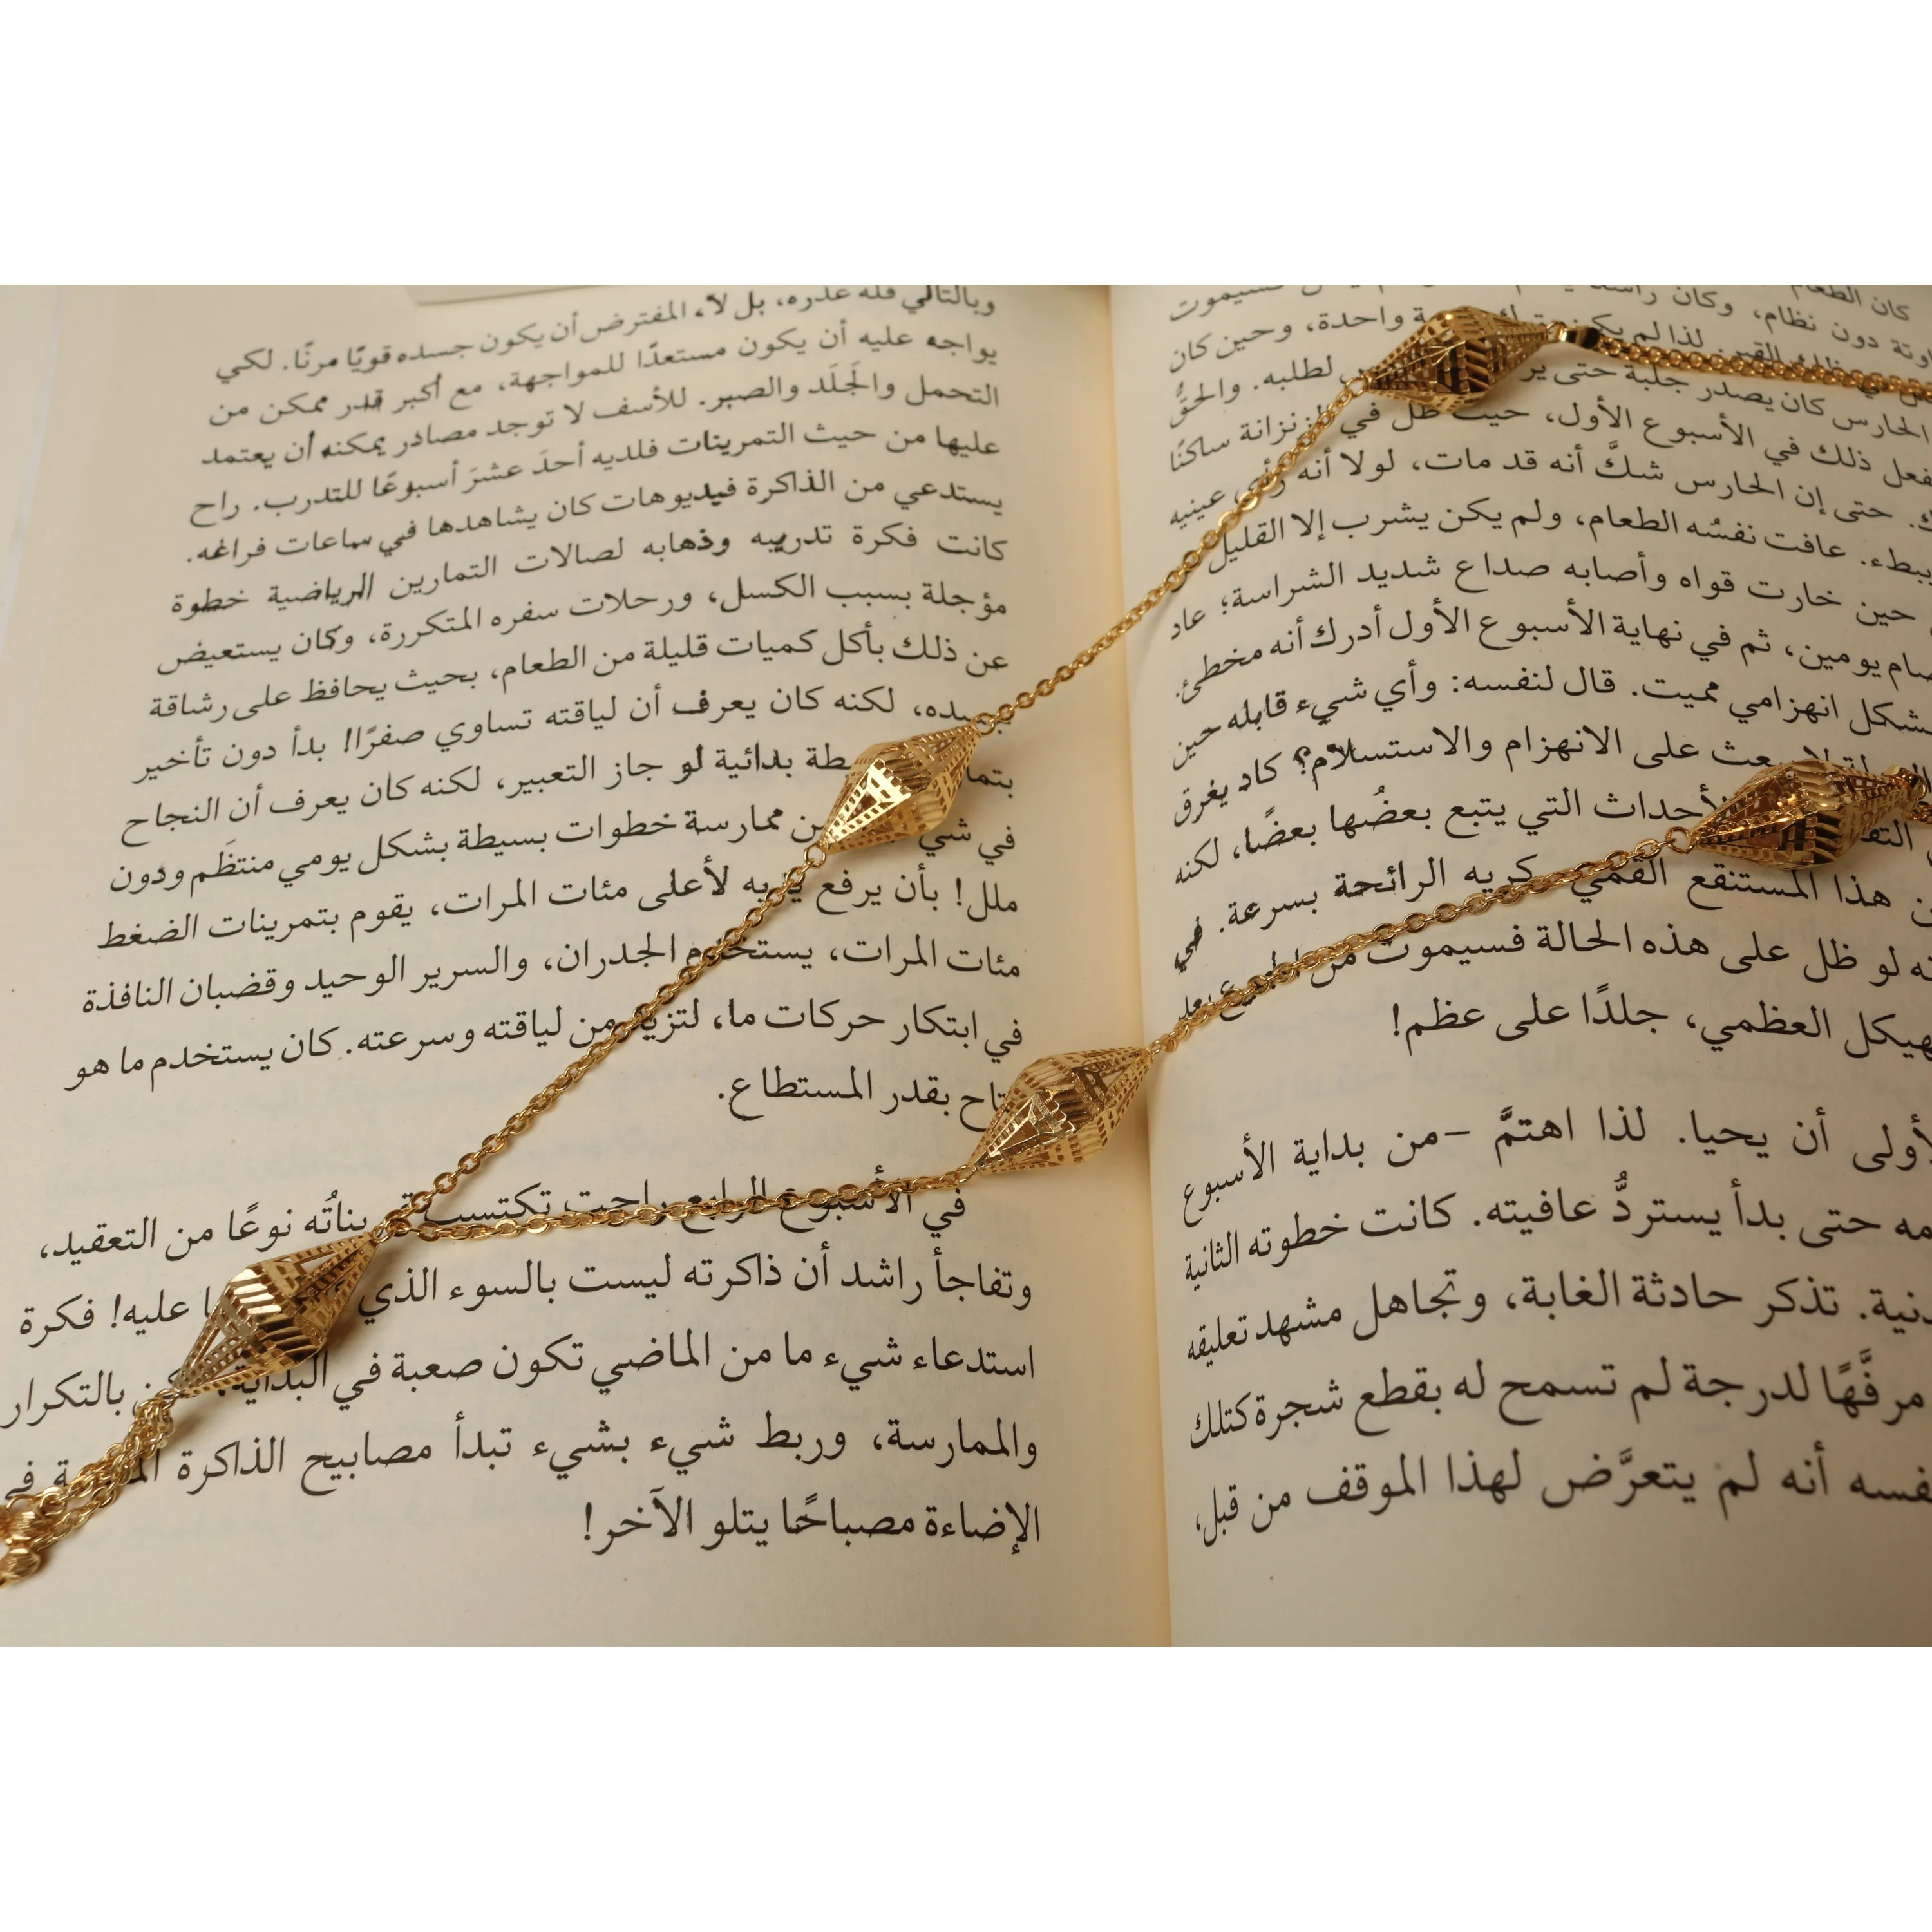 كان الطعام
دون نظام، وكان
لذا لم يكن واحدة، وحين كان
الحارس كان يصدر جلبة حتى لطلبه. والحقُّ
ذلك في الأسبوع الأول، حيث ظل في ساكنًا
حتى إن الحارس شكَّ أنه قد مات، لولا أنه رأى عينيه
ببطء. عافت نفسُه الطعام، ولم يكن يشرب إلا القليل
حين خارت قواه وأصابه صداع شديد الشراسة؛ عاد
يومين، ثم في نهاية الأسبوع الأول أدرك أنه مخطئ.
انهزامي مميت. قال لنفسه: وأي شيء قابله حين
على الانهزام والاستسلام؟ كاد يغرق
الأحداث التي يتبع بعضُها بعضًا، لكنه
هذا المستنقع القميء كريه الرائحة بسرعة. في
لو ظل على هذه الحالة فسيموت من
العظمي، جلدًا على عظم!
أن يحيا. لذا اهتمَّ –من بداية الأسبوع
حتى بدأ يستردُّ عافيته. كانت خطوته الثانية
تذكر حادثة الغابة، وتجاهل مشهد تعليقه
مرفَّهًا لدرجة لم تسمح له بقطع شجرة كتلك
أنه لم يتعرَّض لهذا الموقف من قبل،
وبالتالي فله عذره، بل لا، المفترض أن يكون جسده قويًا مرنًا. لكي
يواجه عليه أن يكون مستعدًا للمواجهة، مع أكبر قدر ممكن من
التحمل والجَلَد والصبر. للأسف لا توجد مصادر يمكنه أن يعتمد
عليها من حيث التمرينات فلديه أحدَ عشرَ أسبوعًا للتدرب. راح
يستدعي من الذاكرة فيديوهات كان يشاهدها في ساعات فراغه.
كانت فكرة تدريبه وذهابه لصالات التمارين الرياضية خطوة
مؤجلة بسبب الكسل، ورحلات سفره المتكررة، وكان يستعيض
عن ذلك بأكل كميات قليلة من الطعام، بحيث يحافظ على رشاقة
جسده، لكنه كان يعرف أن لياقته تساوي صفرًا! بدأ دون تأخير
بدائية لو جاز التعبير، لكنه كان يعرف أن النجاح
في ممارسة خطوات بسيطة بشكل يومي منتظَم ودون
ملل! بأن يرفع يديه لأعلى مئات المرات، يقوم بتمرينات الضغط
مئات المرات، يستخدم الجدران، والسرير الوحيد وقضبان النافذة
في ابتكار حركات ما، لتزيد من لياقته وسرعته. كان يستخدم ما هو
متاح بقدر المستطاع.
في الأسبوع الرابع راحت تكتسب نوعًا من التعقيد،
وتفاجأ راشد أن ذاكرته ليست بالسوء الذي عليه! فكرة
استدعاء شيء ما من الماضي تكون صعبة في البداية، لكن بالتكرار
والممارسة، وربط شيء بشيء تبدأ مصابيح الذاكرة في
الإضاءة مصباحًا يتلو الآخر!